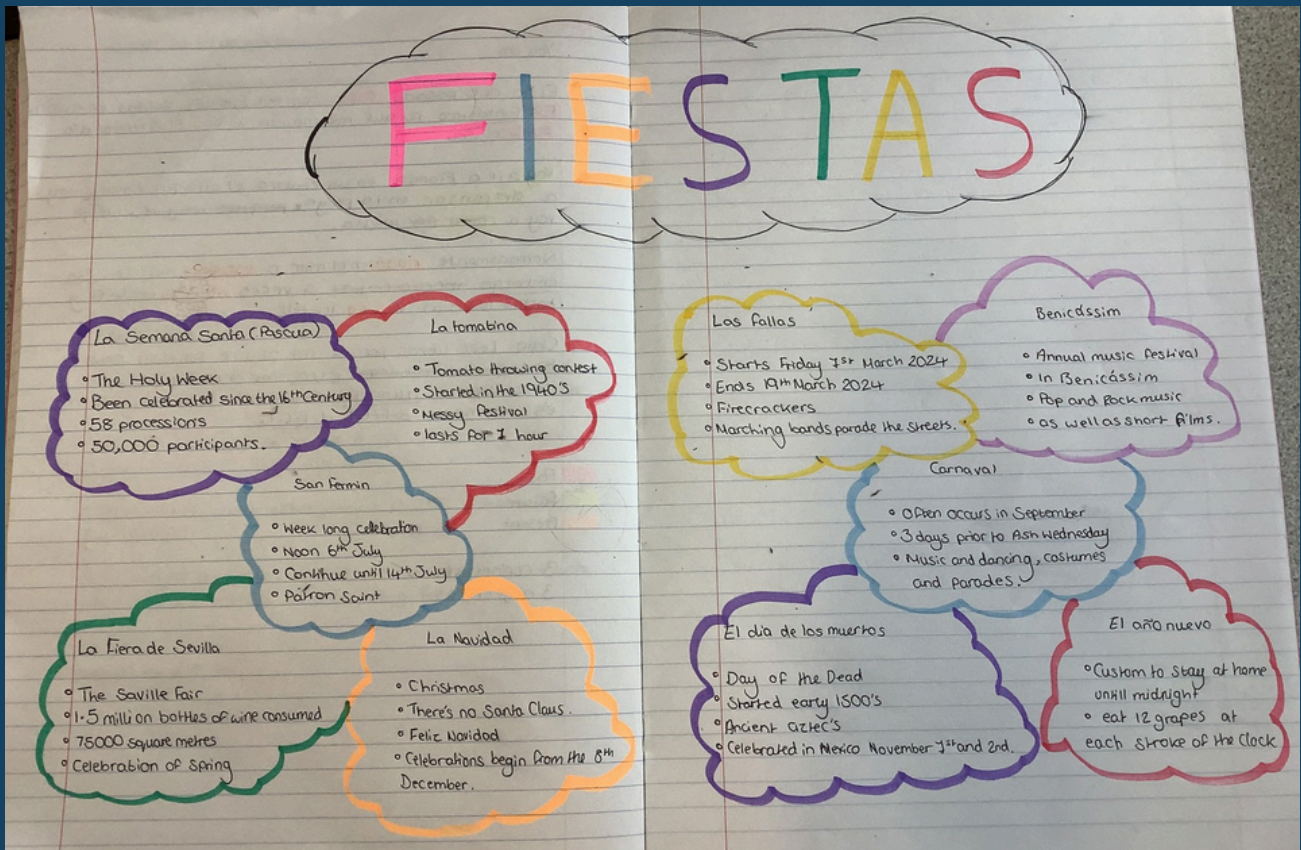 FIESTAS
La Semana Santa (Pascua)
• The Holy Week
• Been celebrated since the 16th Century
• 58 processions
• 50,000 participants.
La tomatina
• Tomato throwing contest
• Started in the 1940's
• Messy festival
• lasts for 1 hour
San Fermin
• Week long celebration
• Noon 6th July
• Continue until 14th July
• Patron Saint
La Fiera de Sevilla
• The Saville Fair
• 1.5 million bottles of wine consumed
• 75000 square metres
• Celebration of Spring
La Navidad
• Christmas
• There's no Santa Claus.
• Feliz Navidad
• Celebrations begin from the 8th
December.
Las fallas
• Starts Friday 1st March 2024
• Ends 19th March 2024
• Firecrackers
• Marching bands parade the streets.
Benicássim
• Annual music festival
• In Benicássim
• Pop and Rock music
• as well as short films.
Carnaval
• Often occurs in September
• 3 days prior to Ash Wednesday
• Music and dancing, costumes
and parades.
El dia de los muertos
• Day of the Dead
• Started early 1500's
• Ancient aztec's
• Celebrated in Mexico November 1st and 2nd.
El año nuevo
• Custom to stay at home
untill midnight
• eat 12 grapes at
each stroke of the Clock